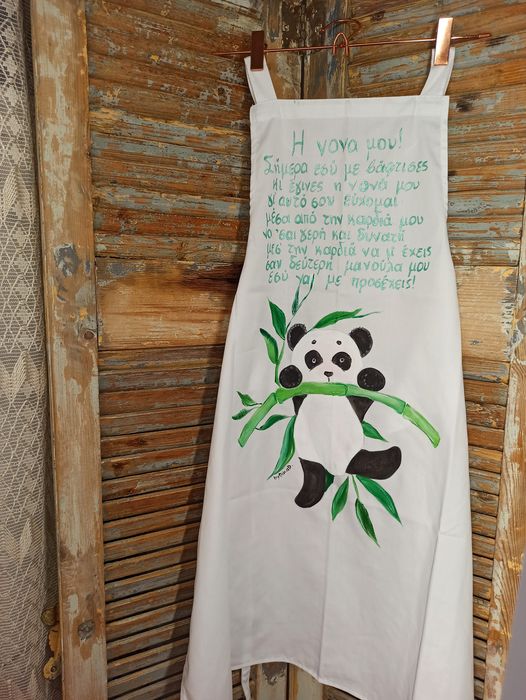 Η νονα μου!
Σήμερα εσύ με βάφτισες
κι έγινες η νονά μου
γι'αυτό σου εύχομαι
μέσα από την καρδιά μου
να 'σαι γερή και δυνατή
μες την καρδιά να μ' έχεις
σαν δεύτερη μανούλα μου
εσύ να με προσέχεις!